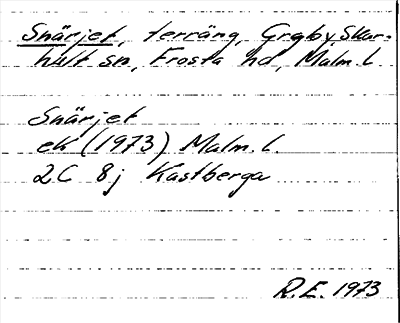 Snärjet, terräng, Grgby, Skar-
hult sn, Frosta hd, Malm.l
Snärjet
ek (1973) Malm.l.
2C 8j Kastberga
R.E. 1973